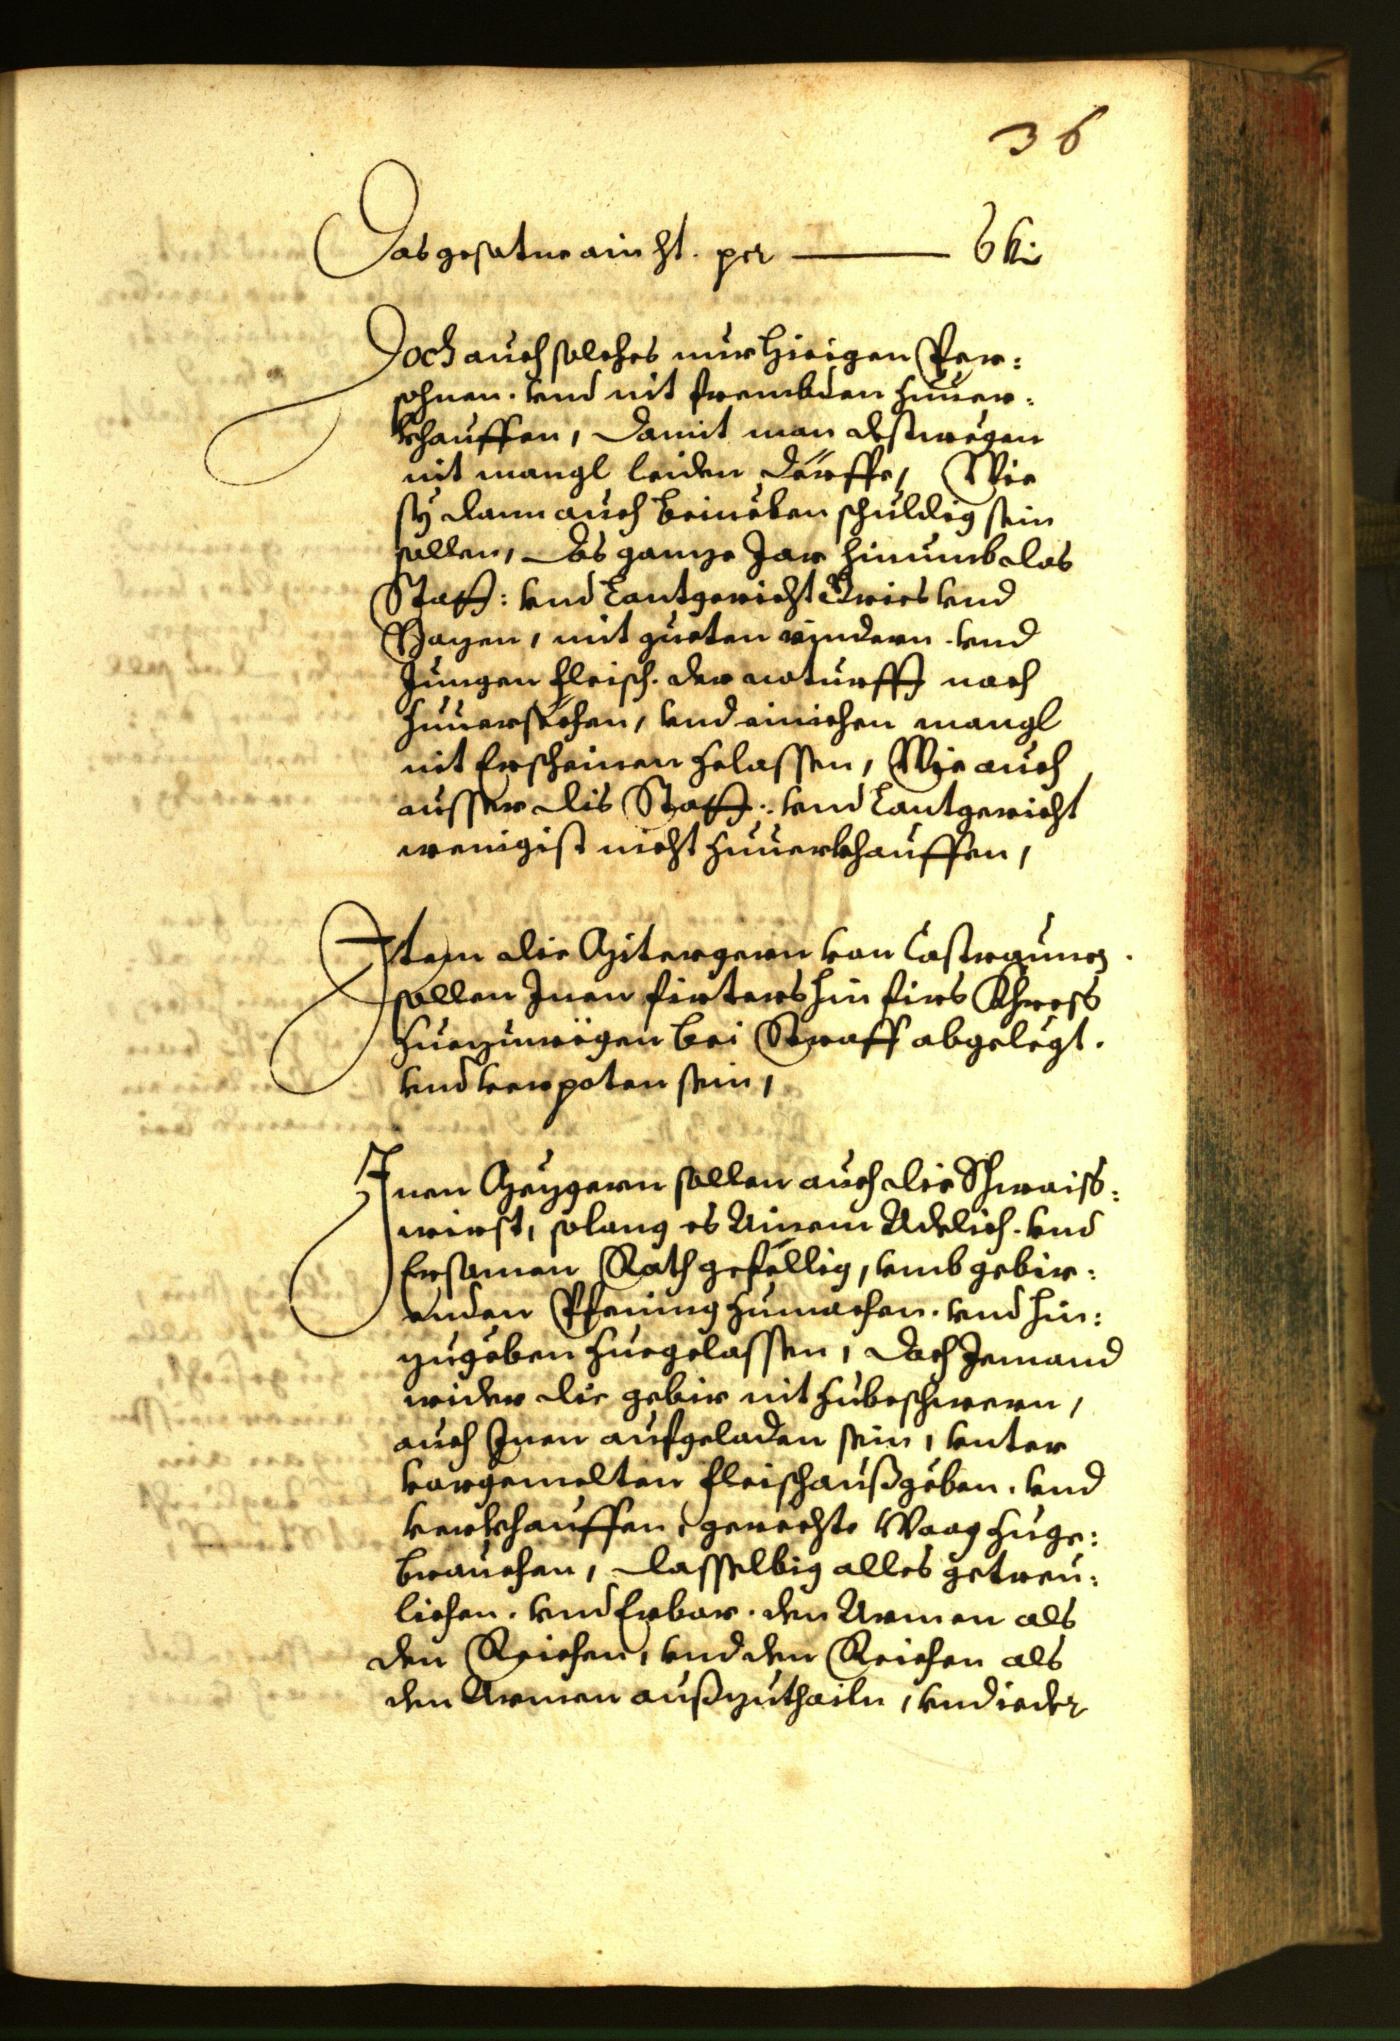 36
Das gesotne ain ht. per — 6 kr
Doch auch solches nur hieigen Per:
sohnen. vnd nit frembden zuuer:
khauffen, damit man destwegen
nit mangl leiden därffe, Wie
sÿ dann auch beineben schuldig sein
sollen, das gannze Jar hinumb das
Statt: vnd Lantgericht Gries vnd
Bozen, mit gueten rindern. vnd
Jungen fleisch. der noturfft nach
zuuersechen, vnd ainichen mangl
nit Erscheinen zelassen, Wie auch
ausser dis Statt: vnd Lantgericht
wenigist nicht zuuerkhauffen,
Item die von Castraunes
sollen Inen firtershin firs Khress
zuezuwëgen bei Straff abgelegt.
vnd verpoten sein,
Inen Mezgern sollen auch die Schwaiss:
wirst, solang es Ainem Adelich. vnd
Ersamen Rath gefellig, vmb gebir:
enden Pfening zumachen. vnd hin:
zugeben zuegelassen, doch Jemand
wider die gebir nit zubeschwern,
auch Inen aufgeladen sein, vnter
vorgemelten fleischaußgeben. vnd
verkhauffen, gerechte Waag zuge:
brauchen, dasselbig alles getreu:
lichen. vnd Erbar. den Armen als
den Reichen, vnd den Reichen als
den Armen außzuthailn, vnd ieder